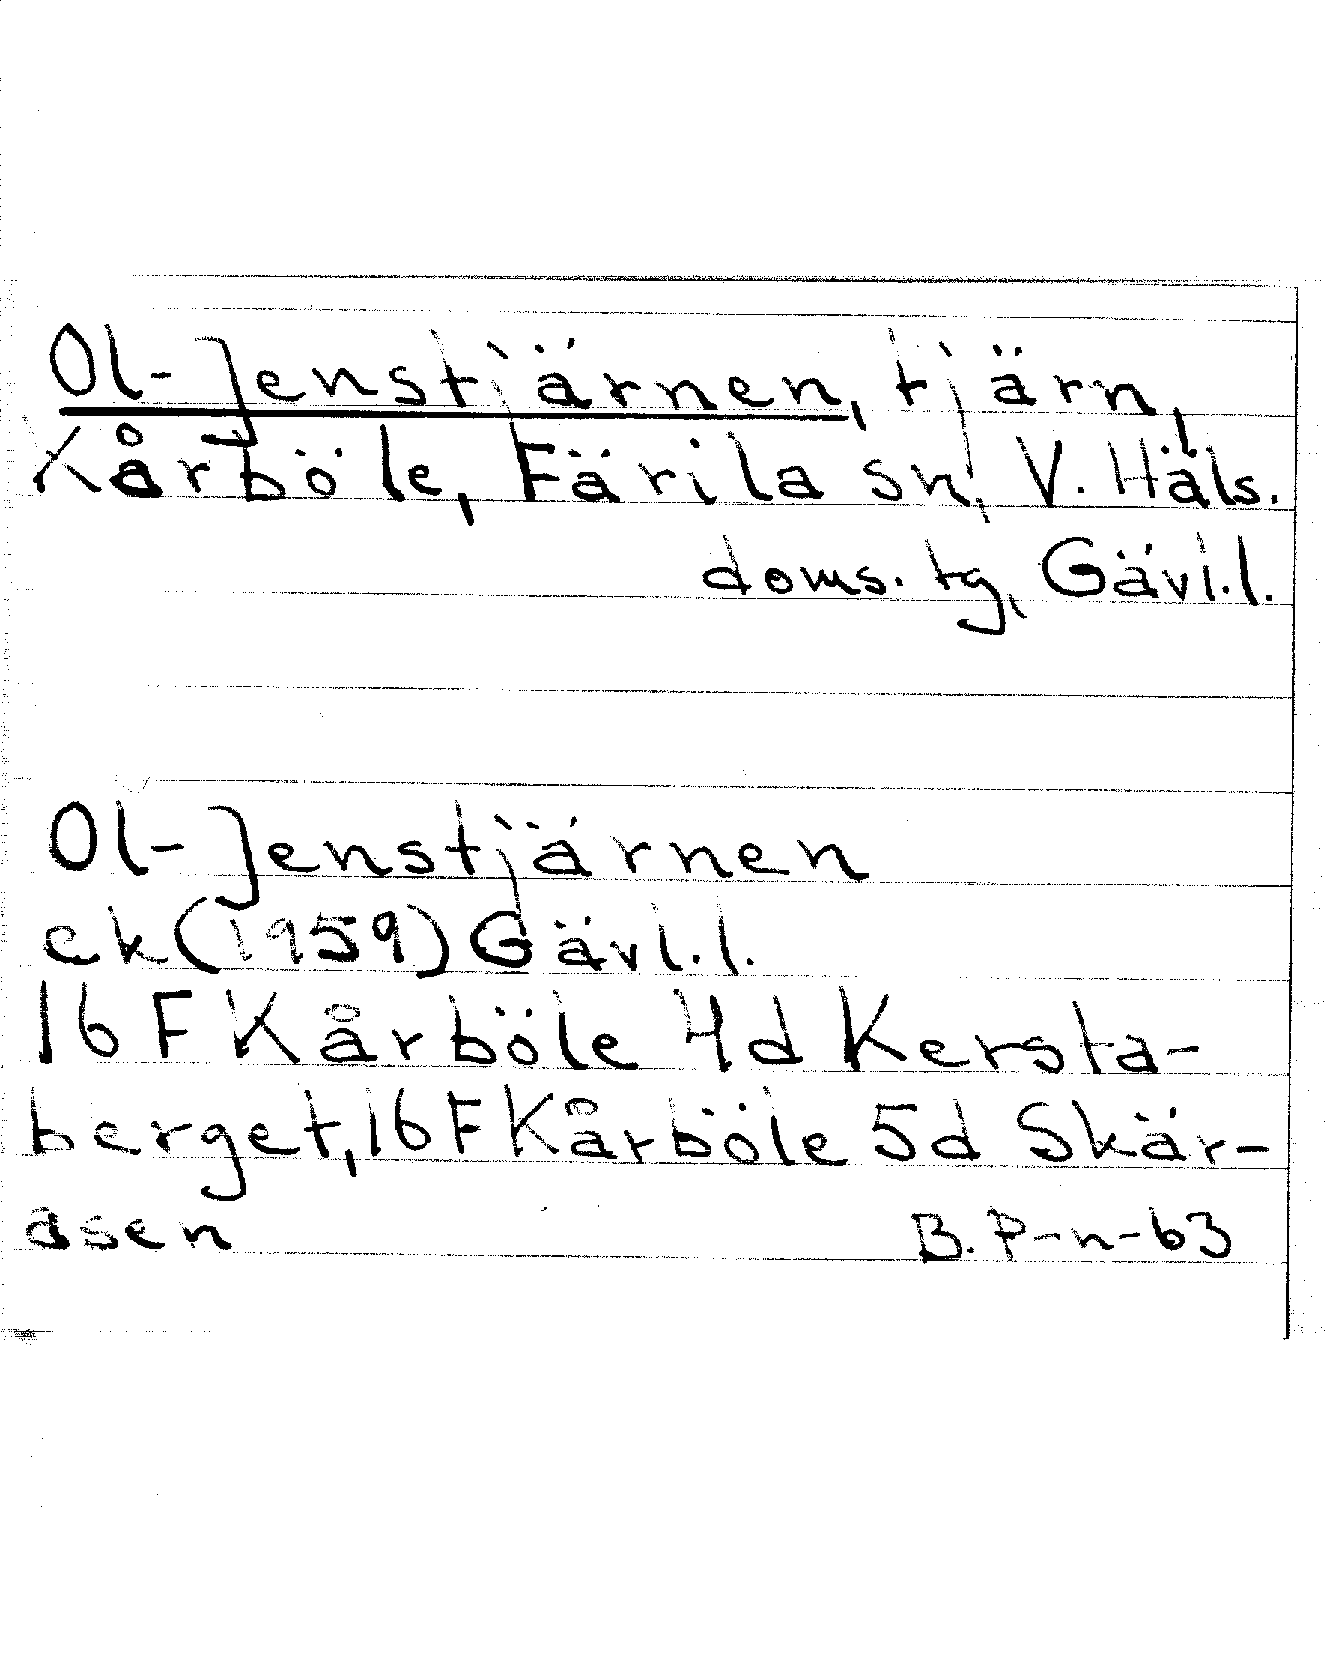 Ol-Jenstjärnen, tjärn,
Kårböle, Färila sn, V. Häls.
doms. tg, Gävl.l.
Ol-Jenstjärnen
ek(1959) Gävl.l.
16 F Kårböle 4d Kersta-
berget, 16 F Kårböle 5d Skär-
åsen B. P-n-63